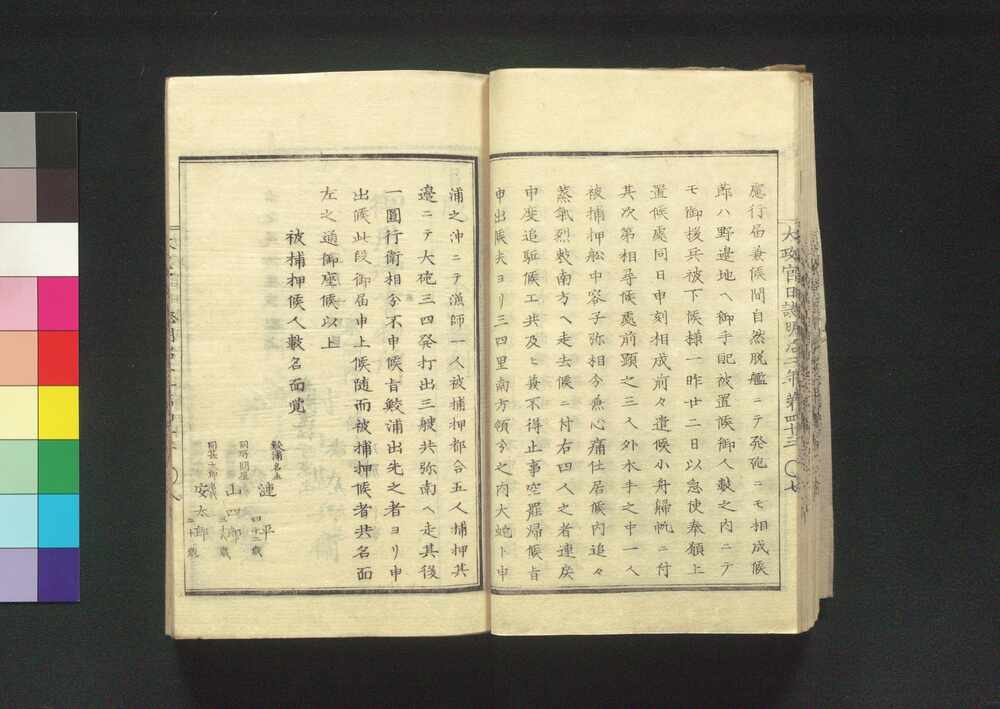 應行届兼候間自然脱艦ニテ発砲ニモ相成候
節ハ野邉地ヘ御手配被置候御人數之内ニテ
モ御援兵被下候様一昨廿二日以急使奉願上
置候處同日申刻相成前々遣候小舟歸帆ニ付
其次第相尋候處前顕之三人外水手之中一人
被捕押船中容子弥相分兼心痛仕居候内追々
蒸氣烈敷南方ヘ走去候ニ付右四人之者連戻
申度追駈候エ共及ヒ兼不得止事空罷帰候旨
申出候夫ヨリ三四里南方領分之内大蛇ト申
太政官日誌明治二年第四十三 〇七
浦之沖ニテ漁師一人被捕押都合五人捕押其
邉ニテ大砲三四發打出三艘共弥南ヘ走其後
一圓行衛相分不申候旨鮫浦出先之者ヨリ申
出候此段御届申上候随而被捕押候者共名面
左之通御座候以上
被捕押候人數名面覚
鮫浦名主
漣平
四十二歳
同所問屋
山四郎
同長太郎名代
安太郎